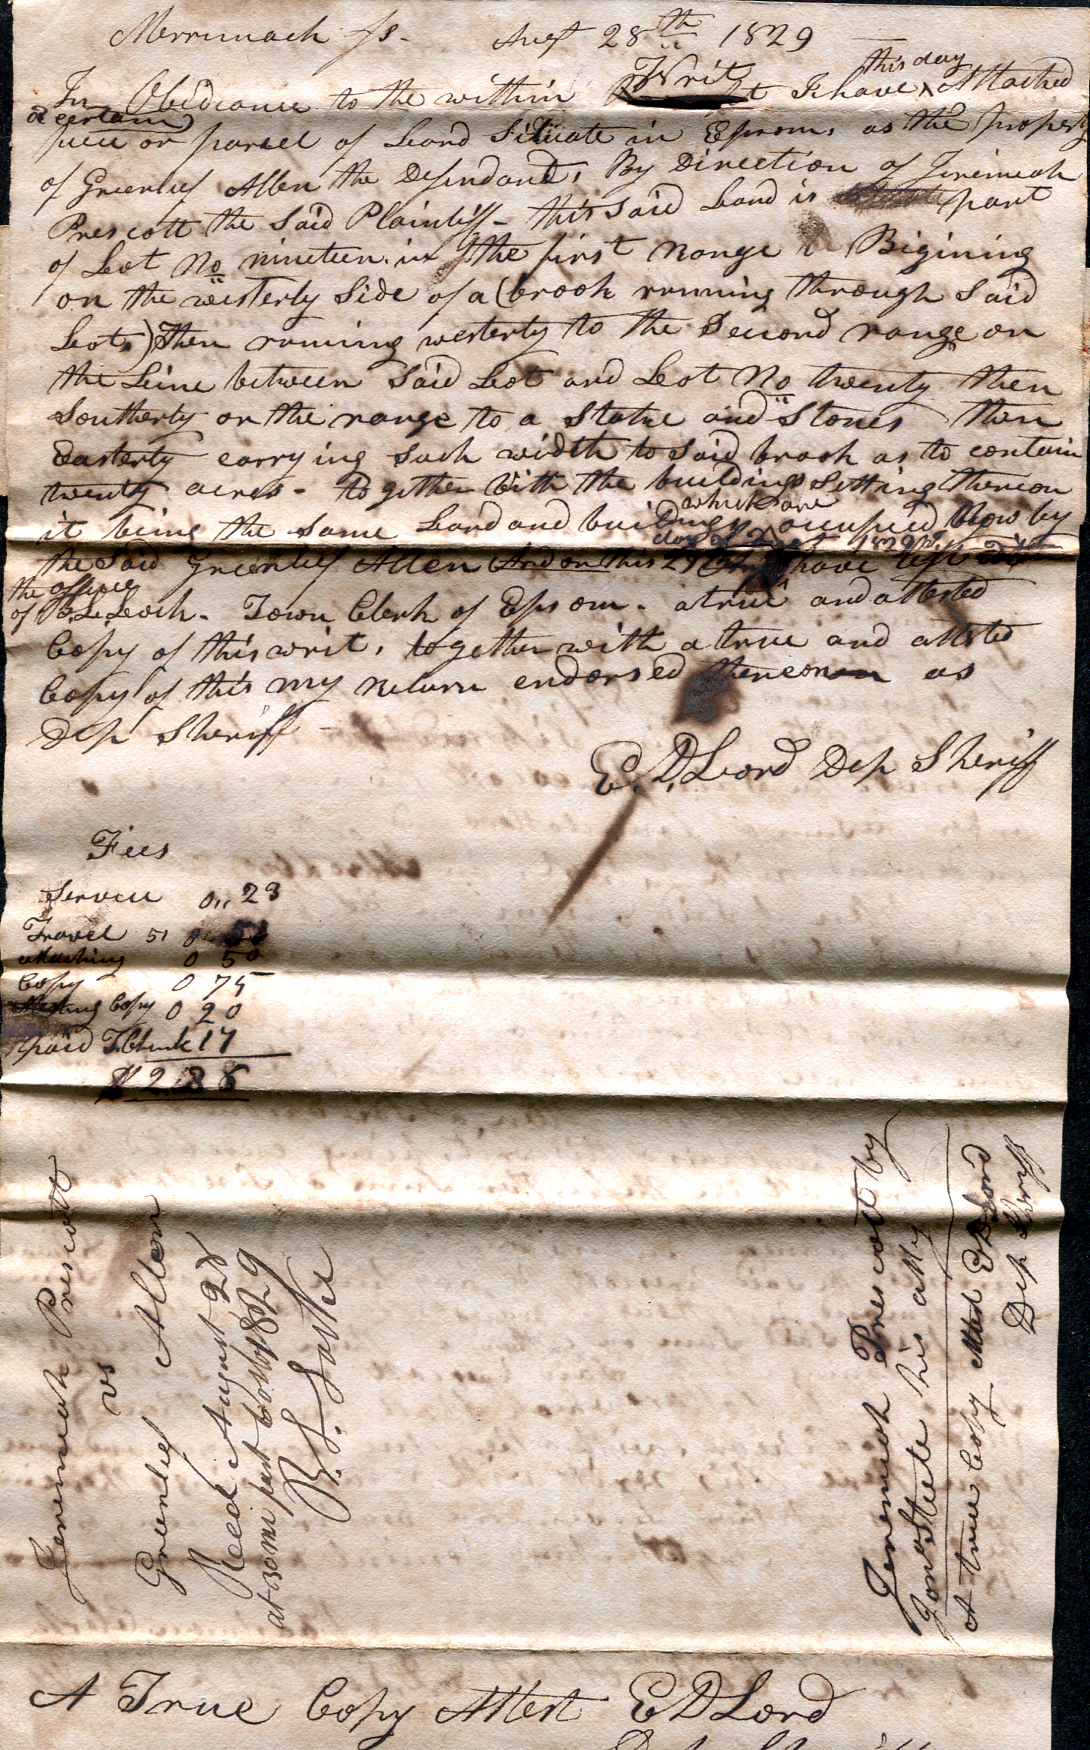 Merrimack ss. Augt 28th 1829
In Obidiance to the within Writ I have this day Attached
a certain
piece or parcel of Land Situate in Epsom, as the property
of Greenlief Allen the Defendant, By Direction of Jeremiah
Prescott the Said Plaintiff - this Said Land is part
of Lot No nineteen in the first Range Bigining
on the westerly Side of a (brook running through Said
Lot,) then runing westerly to the Second range on
the Line between Said Lot and Lot No twenty then
Southerly on the range to a Stake and Stones then
Easterly carrying Such width to Said brook as to contain
twenty acres - together With the buildings Setting thereon
it being the Same Land and buildings which are occupied Now by
the Said Greenlief Allen And on this 29 day of Augt 1829 have left at
the office
of B. L. Locke. Town Clerk of Epsom - a true and attested
Copy of this writ, together with a true and attested
Copy of this my return endorsed thereon as
Dep Sheriff -
E. D. Lord Dep Sheriff
Fees
Service 0,, 23
Travel 51
attaching 0 50
Copy 0 75
Copy 0 20
paid T. Clerk 17
Jeremiah Prescott
vs
Greenlief Allen
Recd August 28
at 30 mi past 1829
B. L. Locke
Jeremiah Prescott by
Jona Steele his atty
A true Copy Attest E D Lord
Dep Sheriff
A True Copy Attest E D Lord
Dep Sheriff